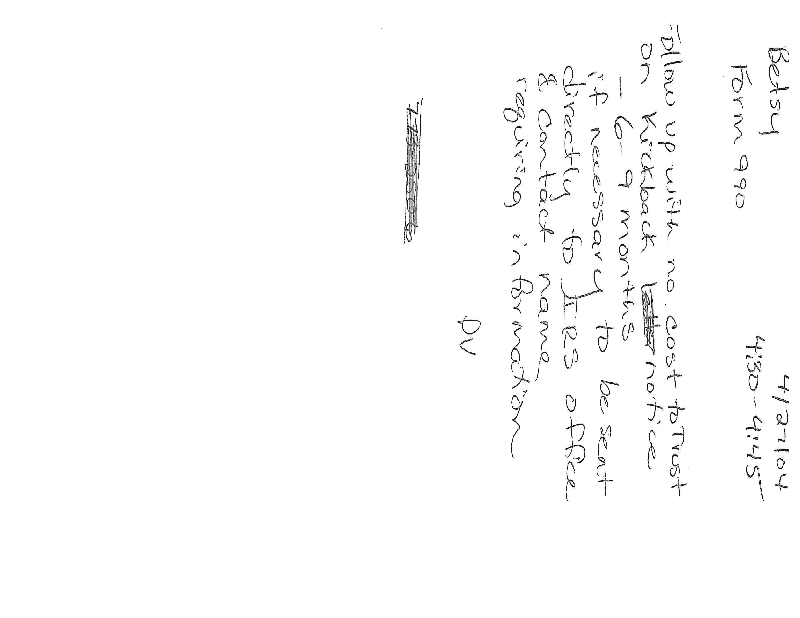 Betsy 4/22/04
Form 990 4:30-4:45
Follow up with no cost to Trust
on Kickback notice
- 6-9 months
if necessary to be sent
directly to IRS office
& contact name
requiring information
DV